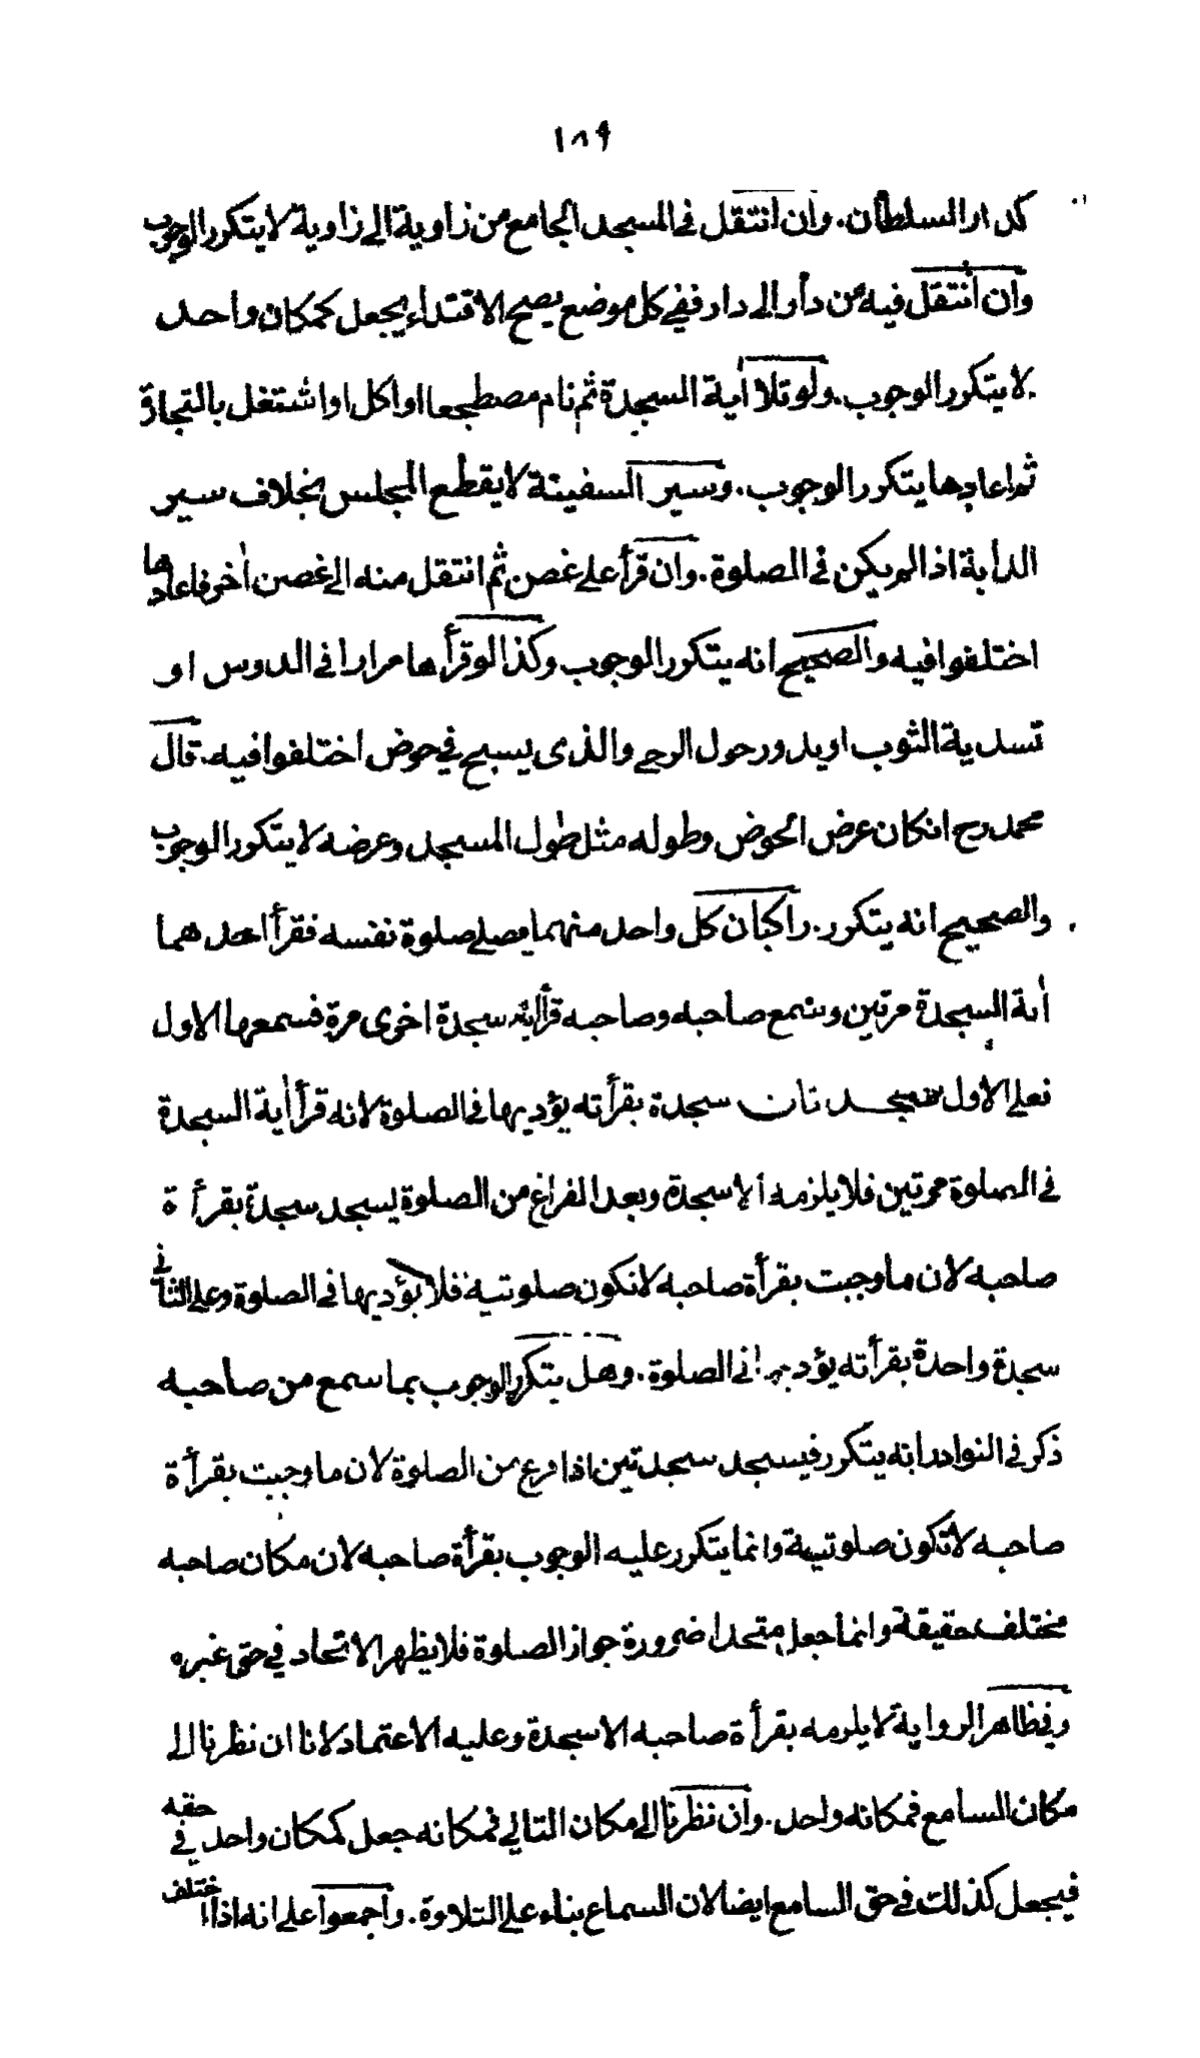 ١٨٩
كدار السلطان. وان انتقل في المسجد الجامع من زاوية الى زاوية لا يتكرر الوجوب
وان انتقل فيه من دار الى دار ففي كل موضع يصح الاقتداء يجعل كمكان واحد
لا يتكرر الوجوب. ولو تلا أية السجدة ثم نام مضطجعا او اكل او اشتغل بالتجارة
ثم اعادها يتكرر الوجوب. وسير السفينة لا يقطع المجلس بخلاف سير
الدابة اذا لم يكن في الصلوة. وان قرأ على غصن ثم انتقل منه الى غصن أخر فاعادها
اختلفوا فيه والصحيح انه يتكرر الوجوب وكذا لو قرأها مرارا في الدوس او
تسدية الثوب او يدور حول الرحى والذى يسبح في حوض اختلفوا فيه. قال
محمد رح انكان عرض الحوض وطوله مثل طول المسجد وعرضه لا يتكرر الوجوب
والصحيح انه يتكرر. راكبان كل واحد منهما يصلي صلوة نفسه فقرأ احدهما
أية السجدة مرتين وسمع صاحبه وصاحبه قرأ أية سجدة اخرى مرة فسمعها الاول
فعلى الاول سجدتان سجدة بقرأته يؤديها في الصلوة لانه قرأ أية السجدة
في الصلوة مرتين فلا يلزمه الا سجدة وبعد الفراغ من الصلوة يسجد سجدة بقرأة
صاحبه لان ما وجبت بقرأة صاحبه لا تكون صلوتية فلا يؤديها في الصلوة وعلى الثاني
سجدة واحدة بقرأته يؤديها في الصلوة. وهل يتكرر الوجوب بما سمع من صاحبه
ذكر في النوادر انه يتكرر فيسجد سجدتين اذا فرغ من الصلوة لان ما وجبت بقرأة
صاحبه لا تكون صلوتية وانما يتكرر عليه الوجوب بقرأة صاحبه لان مكان صاحبه
مختلف حقيقة وانما جعل متحدا ضرورة جواز الصلوة فلا يظهر الاتحاد في حق غيره
وفي ظاهر الرواية لا يلزمه بقرأة صاحبه الا سجدة وعليه الاعتماد لانا ان نظرنا الى
مكان السامع فمكانه واحد. وان نظرنا الى مكان التالي فمكانه جعل كمكان واحد في حقه
فيجعل كذلك في حق السامع ايضا لان السماع بناء على التلاوة. واجمعوا على انه اذا اختلف